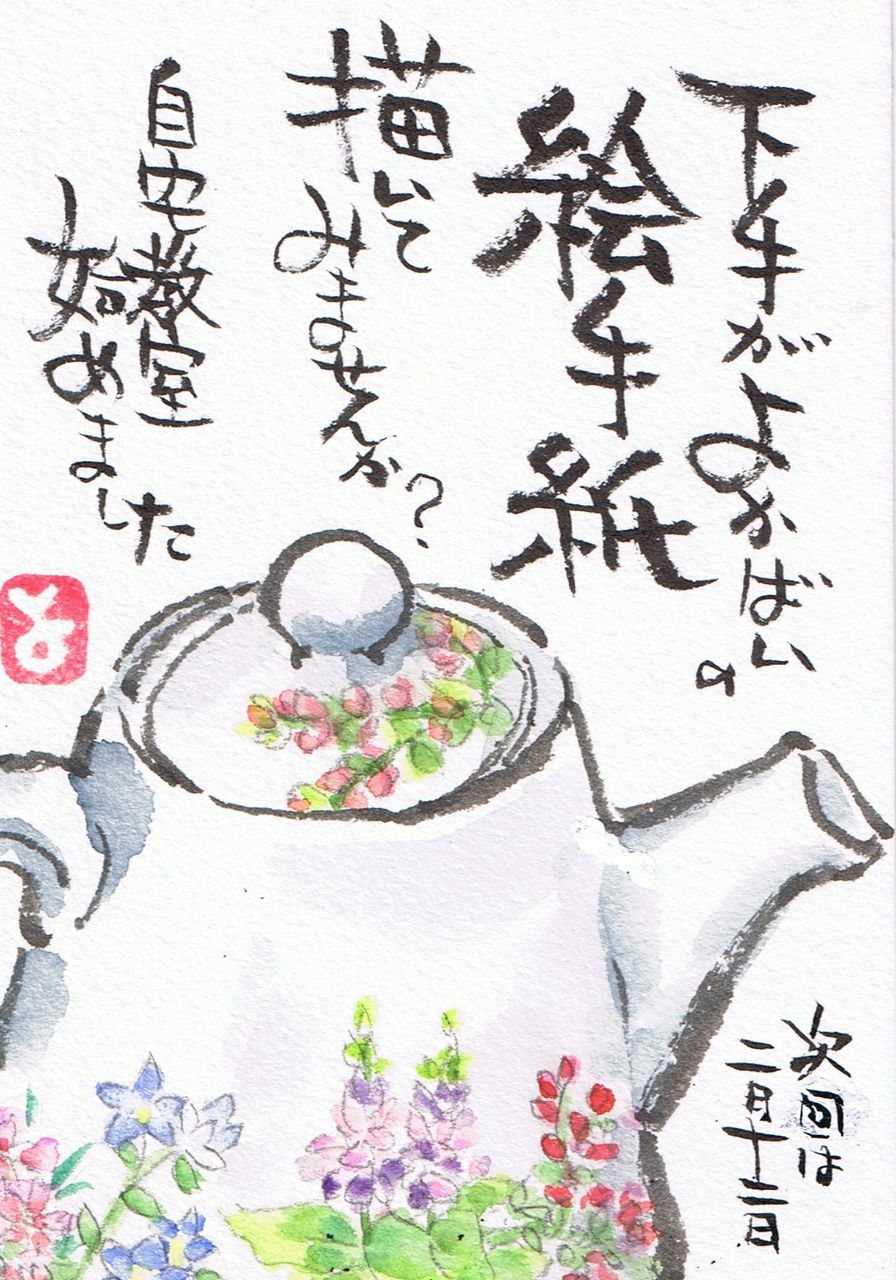 下手がよかばいの
絵手紙
描いて
みませんか？
自宅教室
始めました
と
次回は
二月十二日